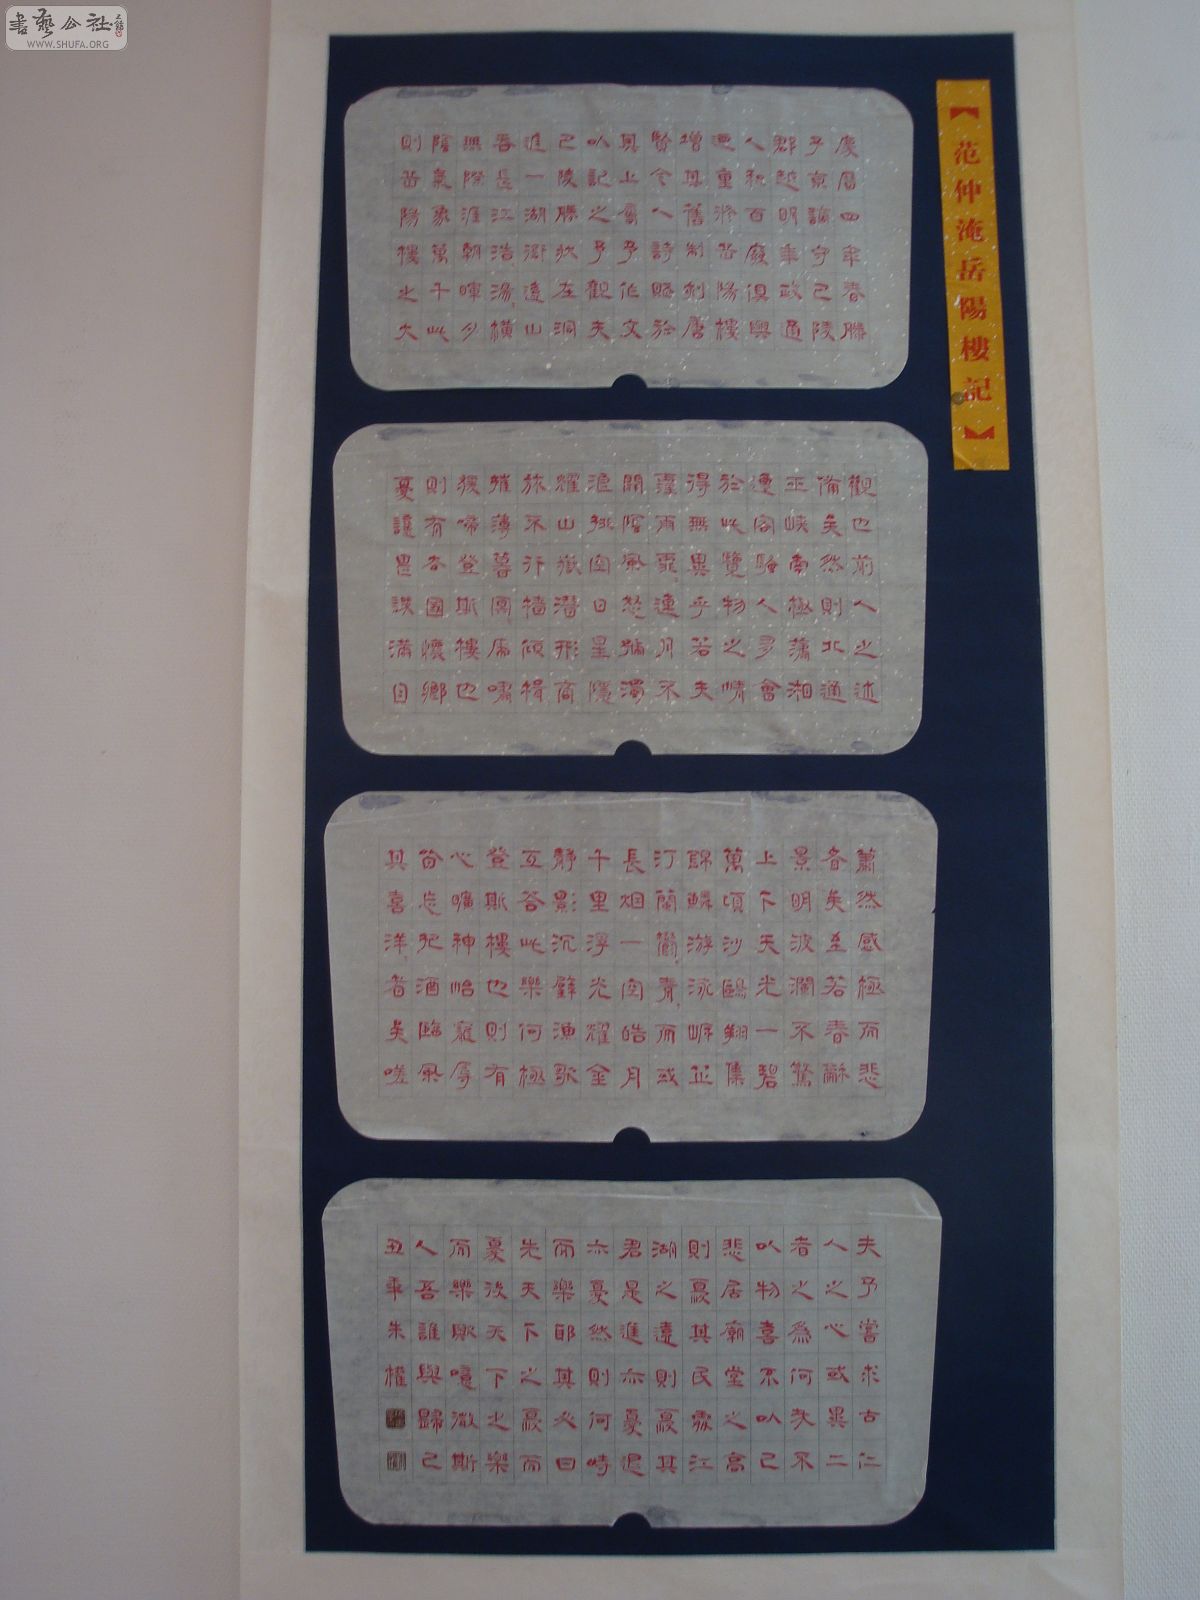 書藝公社
WWW.SHUFA.ORG
【范仲淹岳陽樓記】
慶曆四年春滕
子京謫守巴陵
郡越明年政通
人和百廢俱興
迺重修岳陽樓
增其舊制刻唐
賢今人詩賦於
其上屬予作文
以記之予觀夫
巴陵勝狀在洞
庭一湖銜遠山
吞長江浩湯〻橫
無際涯朝暉夕
陰氣象萬千此
則岳陽樓之大
觀也前人之述
備矣然則北通
巫峽南極瀟湘
遷客騷人多會
於此覽物之情
得無異乎若夫
霪雨霏〻連月不
開陰風怒號濁
浪排空日星隱
耀山嶽潛形商
旅不行檣傾楫
摧薄暮冥〻虎嘯
猿啼登斯樓也
則有去國懷鄉
憂讒畏譏滿目
蕭然感極而悲
者矣至若春和
景明波瀾不驚
上下天光一碧
萬頃沙鷗翔集
錦鱗游泳岸芷
汀蘭鬱〻青〻而或
長烟一空皓月
千里浮光耀金
靜影沉璧漁歌
互答此樂何極
登斯樓也則有
心曠神怡寵辱
皆忘把酒臨風
其喜洋〻者矣嗟
夫予嘗求古仁
人之心或異二
者之為何哉不
以物喜不以己
悲居廟堂之高
則憂其民處江
湖之遠則憂其
君是進亦憂退
亦憂然則何時
而樂耶其必曰
先天下之憂而
憂後天下之樂
而樂歟噫微斯
人吾誰與歸己
丑年朱權